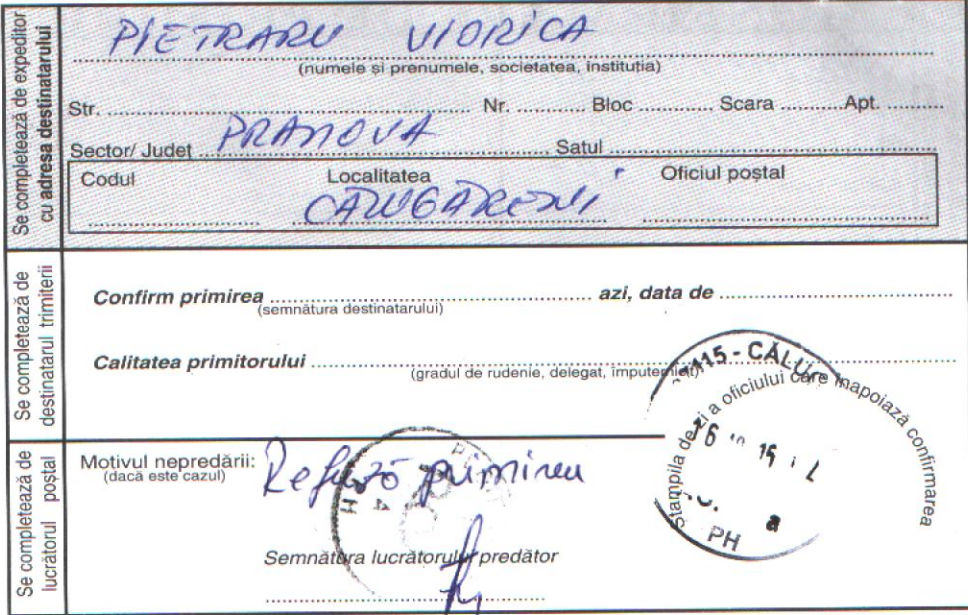 Se completează de expeditor
cu adresa destinatarului
PIETRARU VIORICA
(numele și prenumele, societatea, instituția)
Str. .......... Nr. .......... Bloc .......... Scara .......... Apt. ..........
Sector/ Județ PRAHOVA Satul ..........
Codul Localitatea Oficiul poștal
CALUGARENI
Se completează de
destinatarul trimiterii
Confirm primirea .......... azi, data de ..........
(semnătura destinatarului)
Calitatea primitorului ..........
(gradul de rudenie, delegat, împuternicit)
Ștampila de zi a oficiului care înapoiază confirmarea
PH
Se completează de
lucrătorul poștal
Motivul nepredării: Refuză primirea
(dacă este cazul)
Semnătura lucrătorului predător